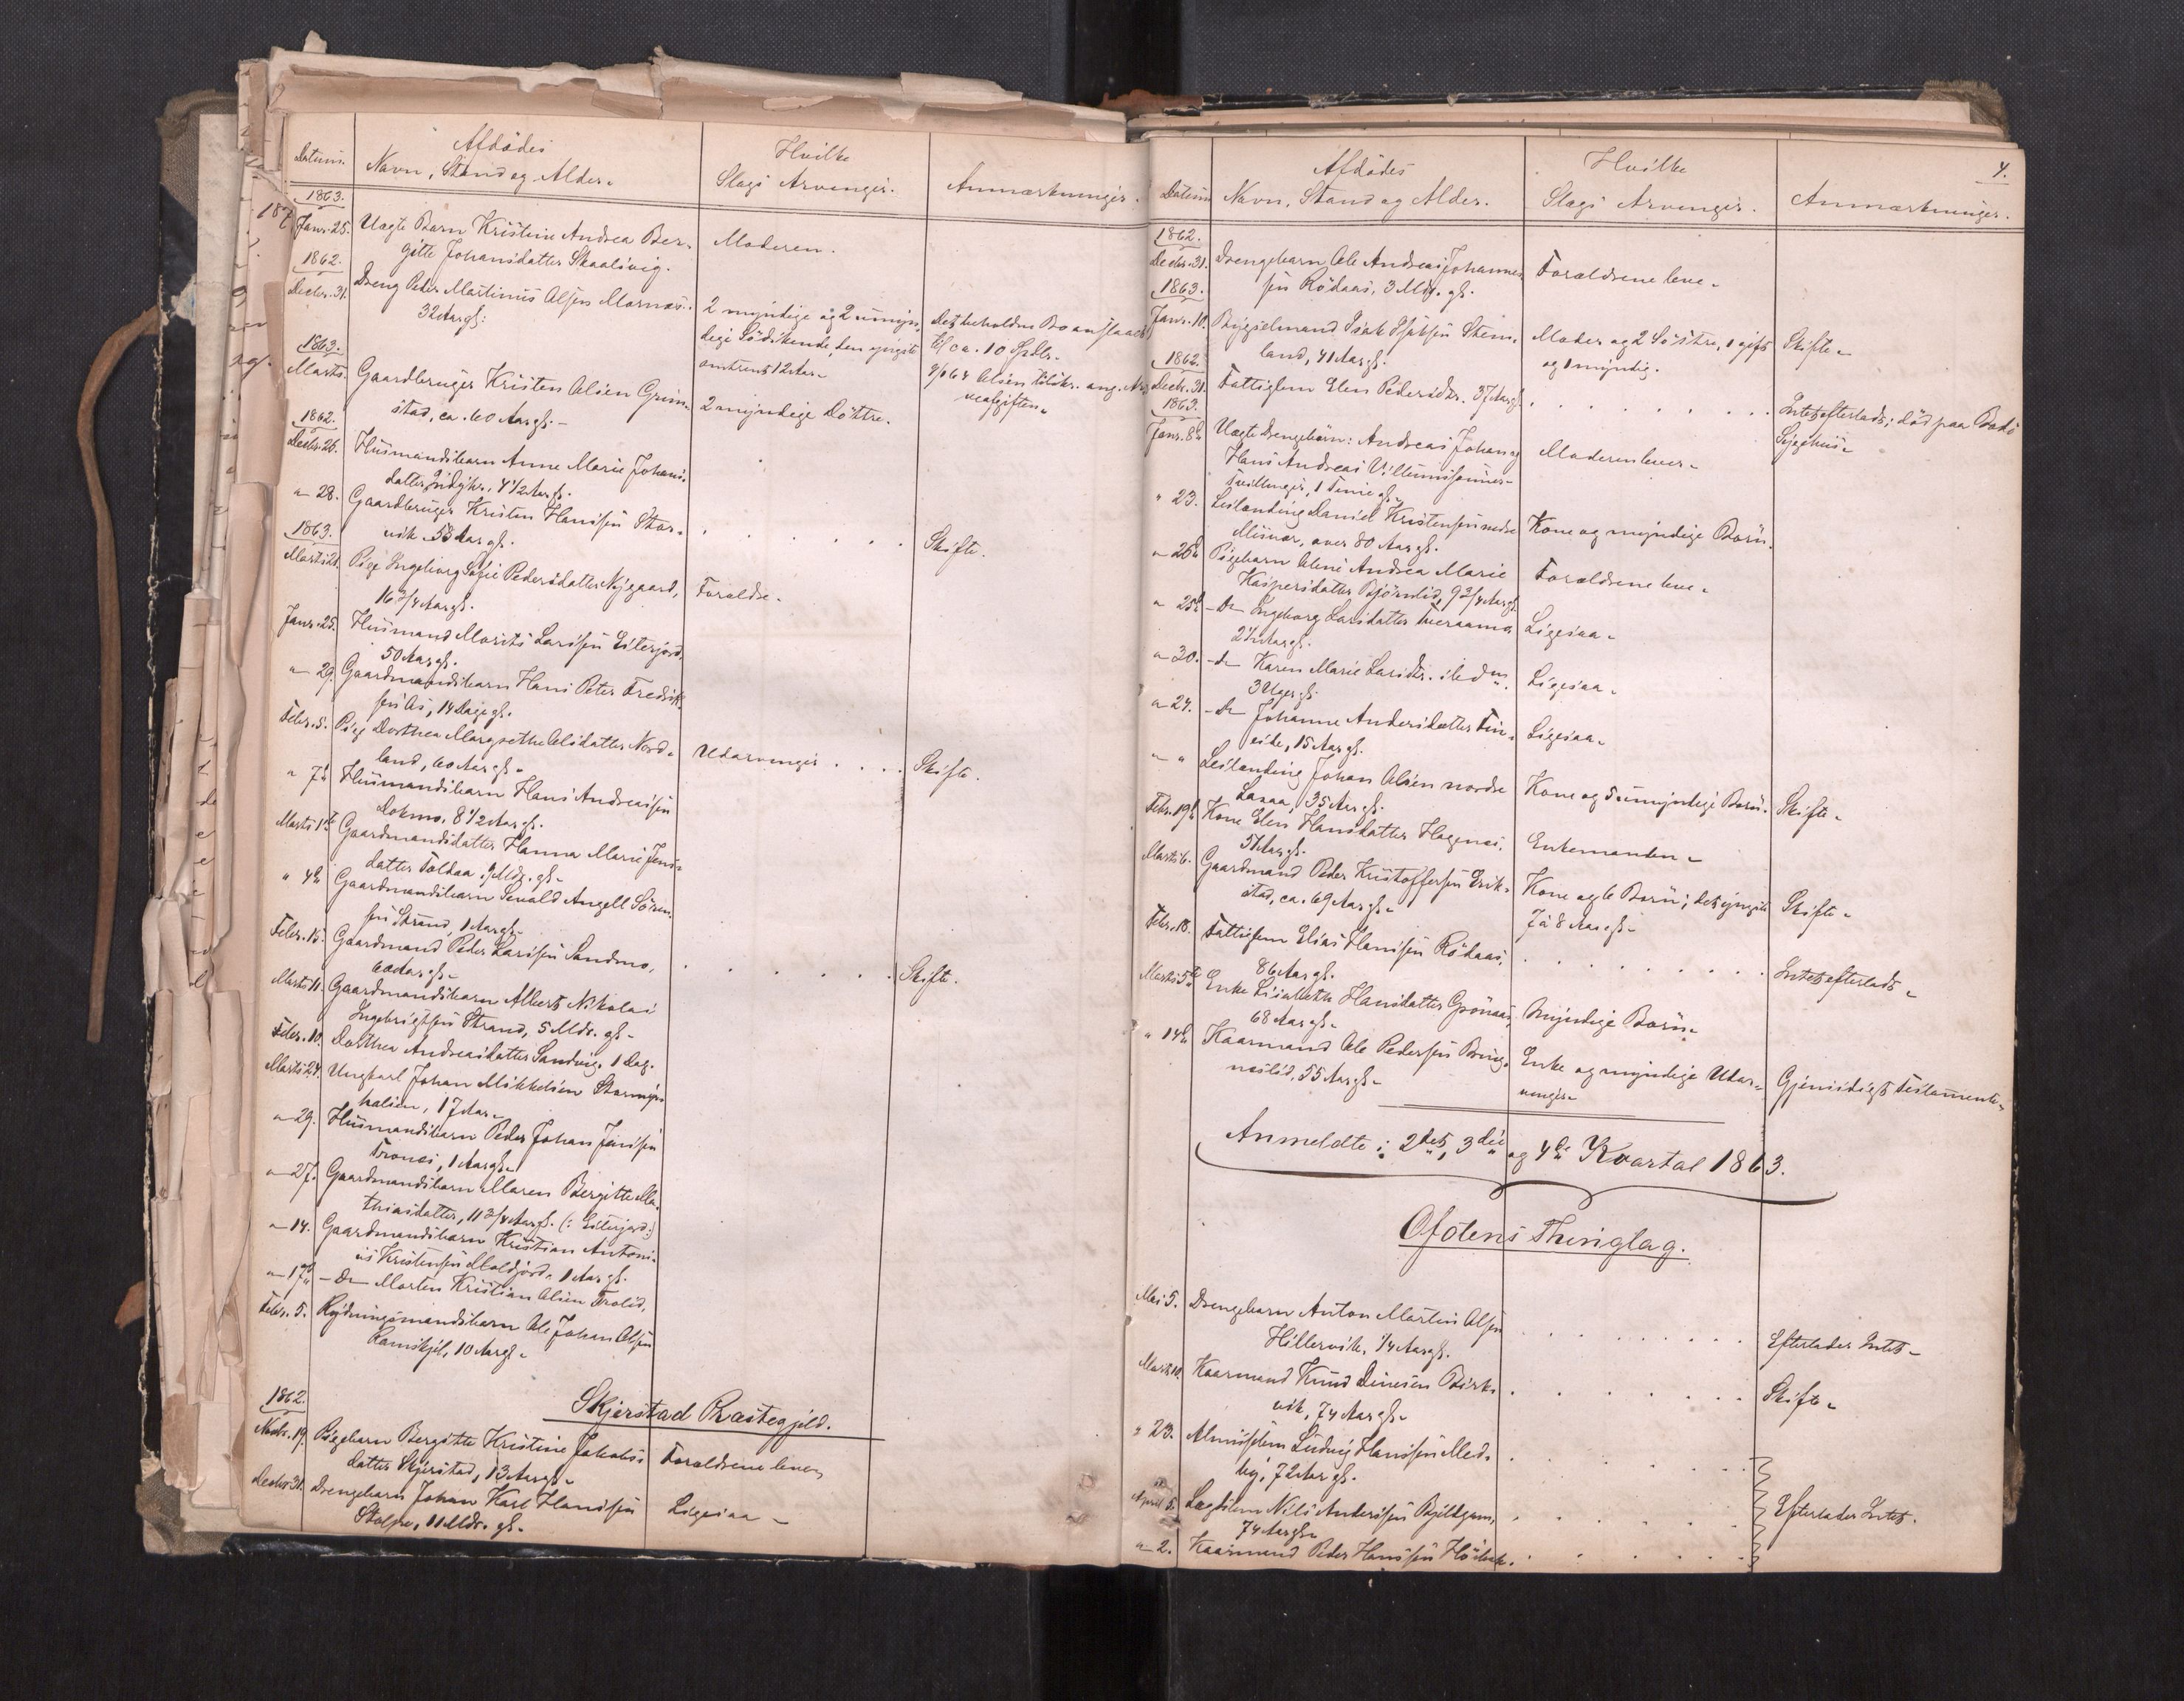 Datum.
Afdödes
Navn, Stand og Alder.
Hvilke
Slags Arvinger.
Anmærkninger.
1863.
Janr. 25.
Uægte Barn Kristine Andrea Ber-
gitte Johansdatter Skaalsvig.
Moderen.
1862.
Decbr. 31.
Dreng Peder Martinus Olsen Mornæs.
32 Aar gl.
2 myndige og 2 umyn-
dige Södskende, den yngste
omtrent 12 Aar.
Det beholdne Bo anslaaes
til ca. 10 Spdlr.
1863.
Marts.
Gaardbruger Kristen Olsen Grim-
stad, ca. 60 Aar gl.
2 myndige Döttre.
1862.
Decbr. 26.
Husmandsbarn Anne Marie Johans-
datter 4 1/2 Aar gl.
" 28.
Gaardbruger Kristen Hansen Stor-
vik 53 Aar gl.
Skifte.
1863.
Marts 21.
Pige Ingeborg Sofie Pedersdatter Nygaard,
16 3/4 Aar gl.
Forældre.
Janr. 25.
Husmand Morits Larssen Eiterjord,
50 Aar gl.
" 29.
Gaardmandsbarn Hans Peter Fredrik-
sen As, 14 Dage gl.
Febr. 5.
Pige Dorthea Margrethe Olsdatter Nord-
land, 60 Aar gl.
Udarvinger . . . .
Skifte.
" 7de
Husmandsbarn Hans Andreassen
Dokmo, 8 1/2 Aar gl.
Marts 1ste
Gaardmandsdatter Hanna Marie Jens-
datter Toldaa, 9 Mdr. gl.
" 4de
Gaardmandsbarn Sevald Angell Sören-
sen Strand, 1 Aar gl.
Febr. 15.
Gaardmand Peder Larssen Sandmo,
60 Aar gl.
Skifte.
Marts 11.
Gaardmandsbarn Albert Nikolai
Ingebrigtsen Strand, 5 Mdr. gl.
Febr. 10.
Dorthea Andreasdatter Sandvig, 1 Dag.
Marts 24.
Ungkarl Johan Mikkelsen Stormyr-
halsen, 17 Aar.
" 29.
Husmandsbarn Peder Johan Jenssen
Trones, 1 Aar gl.
" 27.
Gaardmandsbarn Maren Bergitte Ma-
thiasdatter, 11 3/4 Aar gl. (: Eiterjord :)
" 14.
Gaardmandsbarn Kristian Antoni-
us Kristensen Moldjord, 1 Aar gl.
" 17de
-Do- Morten Kristian Olsen Trolid.
Febr. 5.
Rydningsmandsbarn Ole Johan Olsen
Ramskjel, 10 Aar gl.
Skjerstad Præstegjeld.
1862.
Novbr. 19.
Pigebarn Bergitte Kristine Jakobs-
datter Skjerstad, 13 Aar gl.
Forældrene leve.
Decbr. 31.
Drengebarn Johan Karl Hanssen
Stolpe, 11 Mdr. gl.
Ligesaa
4.
Datum
Afdödes
Navn, Stand og Alder.
Hvilke
Slags Arvinger.
Anmærkninger.
1862.
Decbr. 31.
Drengebarn Ole Andreas Johannes-
sen Rödaas, 3 Mdr. gl.
Forældrene leve
1863.
Janr. 10.
Bygselmand Isak Isaksen Stem-
land, 41 Aar gl.
Moder og 2 Söstre, 1 gift
og 1 myndig.
Skifte
1862.
Decbr. 31.
Fattiglem Elen Pedersdtr. 37 Aar gl.
Intet efterladt; död paa Bodö
Sygehus
1863.
Janr. 8de
Uægte Drengebörn: Andreas Johan og
Hans Andreas Villumssönner
Tvillinger, 1 Time gl.
Moderen lever
" 23.
Leilænding Daniel Kristensen nedre
Misvær, over 80 Aar gl.
Kone og myndige Börn.
" 26de
Pigebarn Oline Andrea Marie
Kaspersdatter Björnlid, 9 3/4 Aar gl.
Forældrene leve
" 25de
-Do- Ingeborg Larsdatter Tveraamo,
2 1/2 Aar gl.
Ligesaa
" 30.
-Do- Karen Marie Larsdtr. ibdm.
3 Uger gl.
Ligesaa
" 24.
-Do- Johanne Andersdatter Fin-
eide, 15 Aar gl.
Ligesaa
" "
Leilænding Johan Olsen nordre
Laxaa, 35 Aar gl.
Kone og 5 umyndige Börn.
Skifte
Febr. 19de
Kone Elen Hansdatter Hagenæs,
51 Aar gl.
Enkemanden
Marts 6.
Gaardmand Peder Kristoffersen Erik-
stad, ca. 69 Aar gl.
Kone og 6 Börn; det yngste
7 à 8 Aar gl.
Skifte
Febr. 18.
Fattiglem Elias Hanssen Rödaas,
86 Aar gl.
Intet efterladt
Marts 5te
Enke Lisabeth Hansdatter Grönaas,
68 Aar gl.
Myndige Börn
" 14de
Kaarmand Ole Pedersen Bring-
neslid, 55 Aar gl.
Enke og myndige Udar-
vinger
Gjensidigt Testamente
Anmeldte i 2det, 3die og 4de Kvartal 1863.
Ofotens Thinglag.
Mai 5.
Drengebarn Anton Martin Olsen
Hillervik, 1/4 Aar gl.
Efterlader Intet
Marts 10.
Kaarmand Knud Dinesen Birk-
vik, 74 Aar gl.
Skifte
" 23.
Almisselem Ludvig Hanssen Med-
by, 72 Aar gl.
April 5.
Lægdslem Nils Anderssen Bjeldgam,
74 Aar gl.
Efterlader Intet.
" 2.
Kaarmand Peder Hanssen